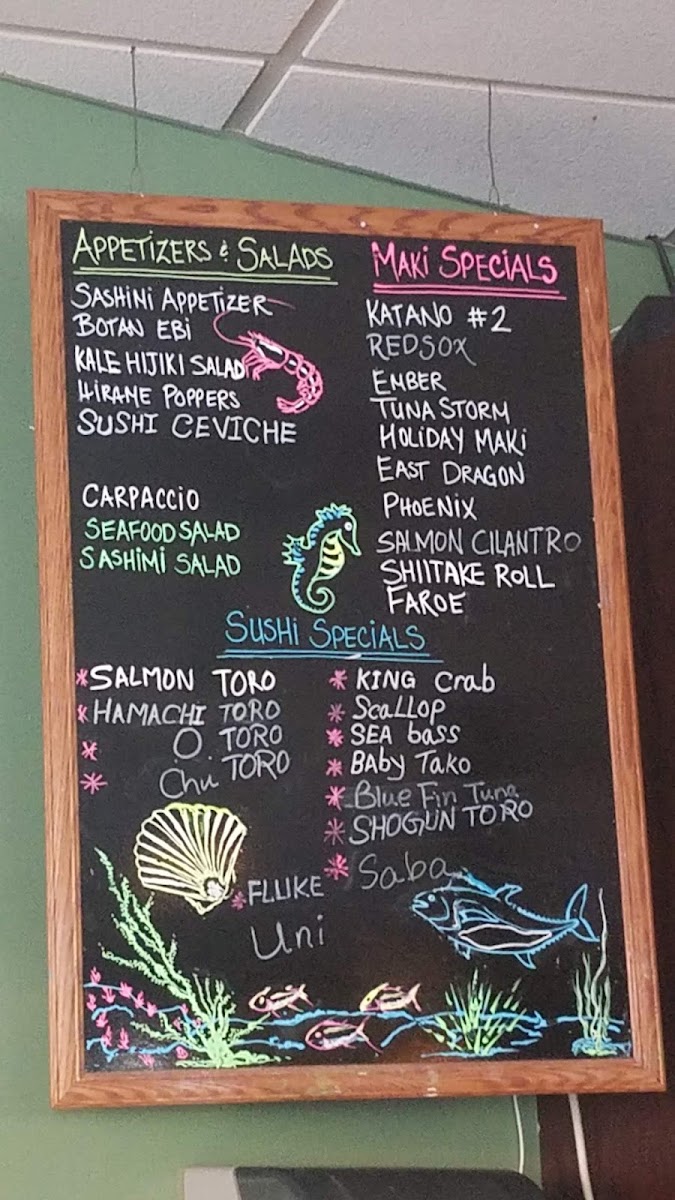 APPETIZERS & SALADS
SASHINI APPETIZER
BOTAN EBI
KALE HIJIKI SALAD
HIRAME POPPERS
SUSHI CEVICHE
CARPACCIO
SEAFOOD SALAD
SASHIMI SALAD
MAKI SPECIALS
KATANO #2
REDSOX
EMBER
TUNA STORM
HOLIDAY MAKI
EAST DRAGON
PHOENIX
SALMON CILANTRO
SHIITAKE ROLL
FAROE
SUSHI SPECIALS
*SALMON TORO
*HAMACHI TORO
* O. TORO
* Chu TORO
*FLUKE
Uni
*KING Crab
*Scallop
*SEA bass
*BAby TAko
*Blue Fin Tuna
*SHOGUN TORO
*Saba